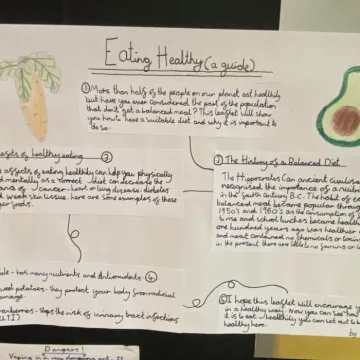 Eating Healthy (a guide)
① More than half of the people on our planet eat healthily
but have you ever considered the part of the population
that don't get a balanced meal? This leaflet will show
you how to have a suitable diet and why it is important to
do so.
of healthy eating ②
assets of eating healthily can help you physically
mentally as a correct diet can decrease the
of cancer, heart or lung disease, diabetes
weak skin tissue. here are some examples of these
foods.
③ The History of a Balanced Diet
The Hippocrates (an ancient civilisa
recognised the importance of a nutri
in the fourth century B.C. The habit of ea
balanced meal became popular through
1950's and 1960's as the consumption of
rose and school lunches became health
one hundred years ago was healthier
and meat contained no chemicals or toxins
in the present there are little no farmers or
- has many nutrients and Antioxidants ④
potatoes - they protect your body from radical
damage.
cranberries - stops the risk of urinary tract infections
(UTI)
⑤ I hope this leaflet will encourage y
in a healthy way. Now you can see how
it is to eat healthily you can set out to b
healthy here.
by
Dangers!
Vaping is a